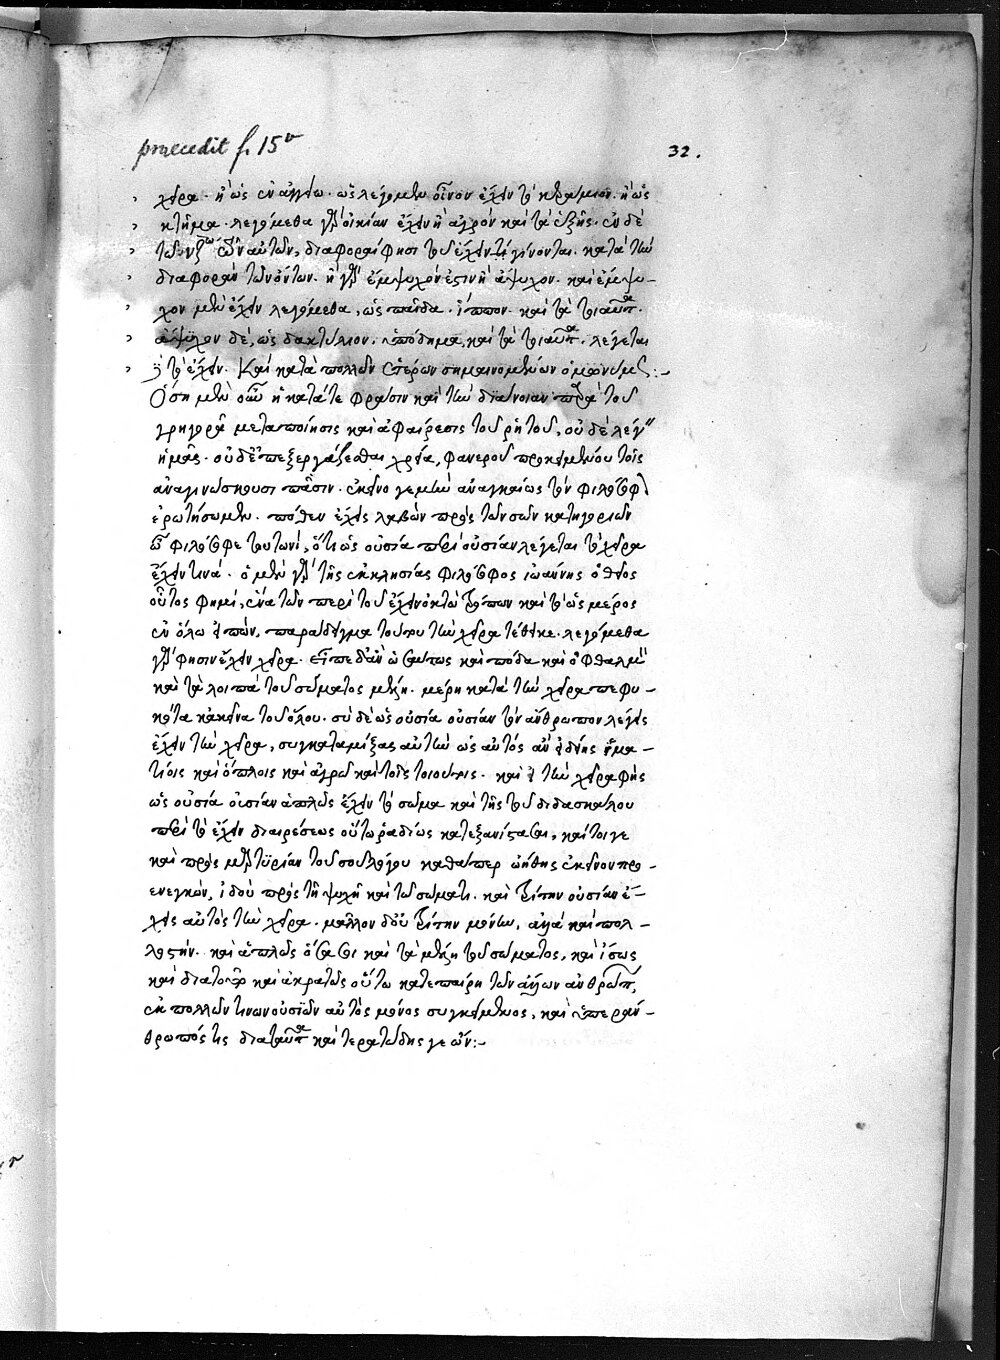 praecedit f. 15v
32.
χεῖρα· ἢ ὡς ἐν ἀγγείω· ὡς λέγομεν οἶνον ἔχειν τὸ κεράμιον· ἢ ὡς
κτῆμα· λεγόμεθα γὰρ οἰκίαν ἔχειν ἢ ἀγρόν καὶ τὰ ἑξῆς· ἐν δὲ
αὐτῶν, διαφοραί φησι τοῦ ἔχειν τι γίνονται· κατὰ τὴν
διαφορὰν τῶν ὄντων· ἢ γὰρ ἔμψυχόν ἐστιν ἢ ἄψυχον· καὶ ἔμψυ-
χον μὲν ἔχειν λεγόμεθα, ὡς παῖδα· ἵππον· καὶ τὰ τοιαῦτα·
ἄψυχον δὲ, ὡς δακτύλιον· ὑπόδημα, καὶ τὰ τοιαῦτα· λέγεται
τὸ ἔχειν· Καὶ κατὰ πολλῶν ἑτέρων σημαινομένων ὁμωνύμως:-
Ὅση μὲν οὖν ἡ κατά τε φράσιν καὶ τὴν διάνοιαν παρὰ τοῦ
γρηγορᾶ μεταποίησις καὶ ἀφαίρεσις τοῦ ῥητοῦ, οὐδὲ λέγειν
ἡμᾶς· οὐδ' ἐπεξεργάζεσθαι χρεία, φανεροῦ προκειμένου τοῖς
ἀναγινώσκουσι πᾶσιν· ἐκεῖνο γε μὴν ἀναγκαίως τὸν φιλόσοφον
ἐρωτήσωμεν· πόθεν ἔχεις λαβὼν πρὸς τῶν σῶν κατηγοριῶν
ὦ φιλόσοφε τουτονί, ὅτι ὡς οὐσία περὶ οὐσίαν λέγεται τὸ χεῖρα
ἔχειν τινά· ὁ μὲν γὰρ τῆς ἐκκλησίας φιλόσοφος ἰωάννης ὁ θεῖος
οὗτος φημί, ἕνα τῶν περὶ τοῦ ἔχειν ὀκτὼ τρόπων καὶ τὸ ὡς μέρος
ἐν ὅλω εἰπών, παράδειγμα τούτου τὴν χεῖρα τέθεικε· λεγόμεθα
γάρ φησιν ἔχειν χεῖρα· εἶπε δ' ἂν ὡσαύτως καὶ πόδα καὶ ὀφθαλμὸν
καὶ τὰ λοιπὰ τοῦ σώματος μέρη· μέρη κατὰ τὴν χεῖρα πεφυ-
κότα κἀκεῖνα τοῦ ὅλου· σὺ δὲ ὡς οὐσία οὐσίαν τὸν ἄνθρωπον λέγεις
ἔχειν τὴν χεῖρα, συγκαταμίξας αὐτὴν ὡς αὐτὸς ἂν εἰδείης ἱμα-
τίοις καὶ ὅπλοις καὶ ἀγρῶ καὶ τοῖς τοιούτοις· καὶ εἰ τὴν χεῖρα φῂς
ὡς οὐσία οὐσίαν ἁπλῶς ἔχειν τὸ σῶμα καὶ τῆς τοῦ διδασκάλου
περὶ τὸ ἔχειν διαιρέσεως οὕτω ῥαδίως κατεξανίστασαι, καίτοιγε
καὶ πρὸς μαρτυρίαν τοῦ σοῦ λόγου καθάπερ ὠήθης ἐκεῖνον προ-
ενεγκών, ἰδοὺ πρὸς τῆ ψυχῆ καὶ τῶ σώματι· καὶ τρίτην οὐσίαν ἔ-
χεις αὐτὸς τὴν χεῖρα· μᾶλλον δ' οὐ τρίτην μόνην, ἀλλὰ καὶ πολ-
λοστήν· καὶ ἁπλῶς ὅσα σοι καὶ τὰ μέρη τοῦ σώματος, καὶ ἴσως
καὶ διατοῦτο καὶ ἀκρατῶς οὕτω κατεπαίρη τῶν ἄλλων ἀνθρώπων,
ἐκ πολλῶν τινων οὐσιῶν αὐτὸς μόνος συγκείμενος, καὶ ὑπεράν-
θρωπός τις διαταῦτα καὶ τερατώδης γε ὤν:-